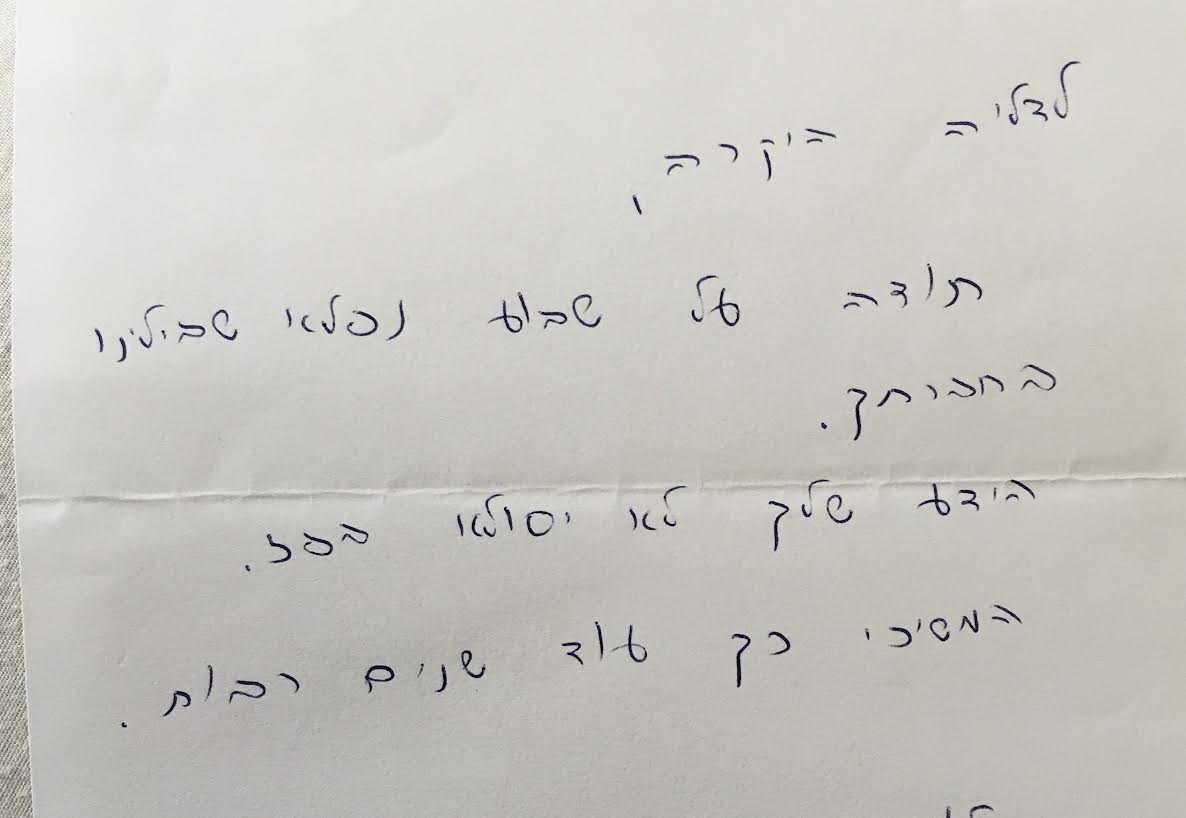 לדליה היקרה,
תודה על שבוע נפלא שבילינו
בחברתך.
הידע שלך לא יסולא בפז.
המשיכי כך עוד שנים רבות.